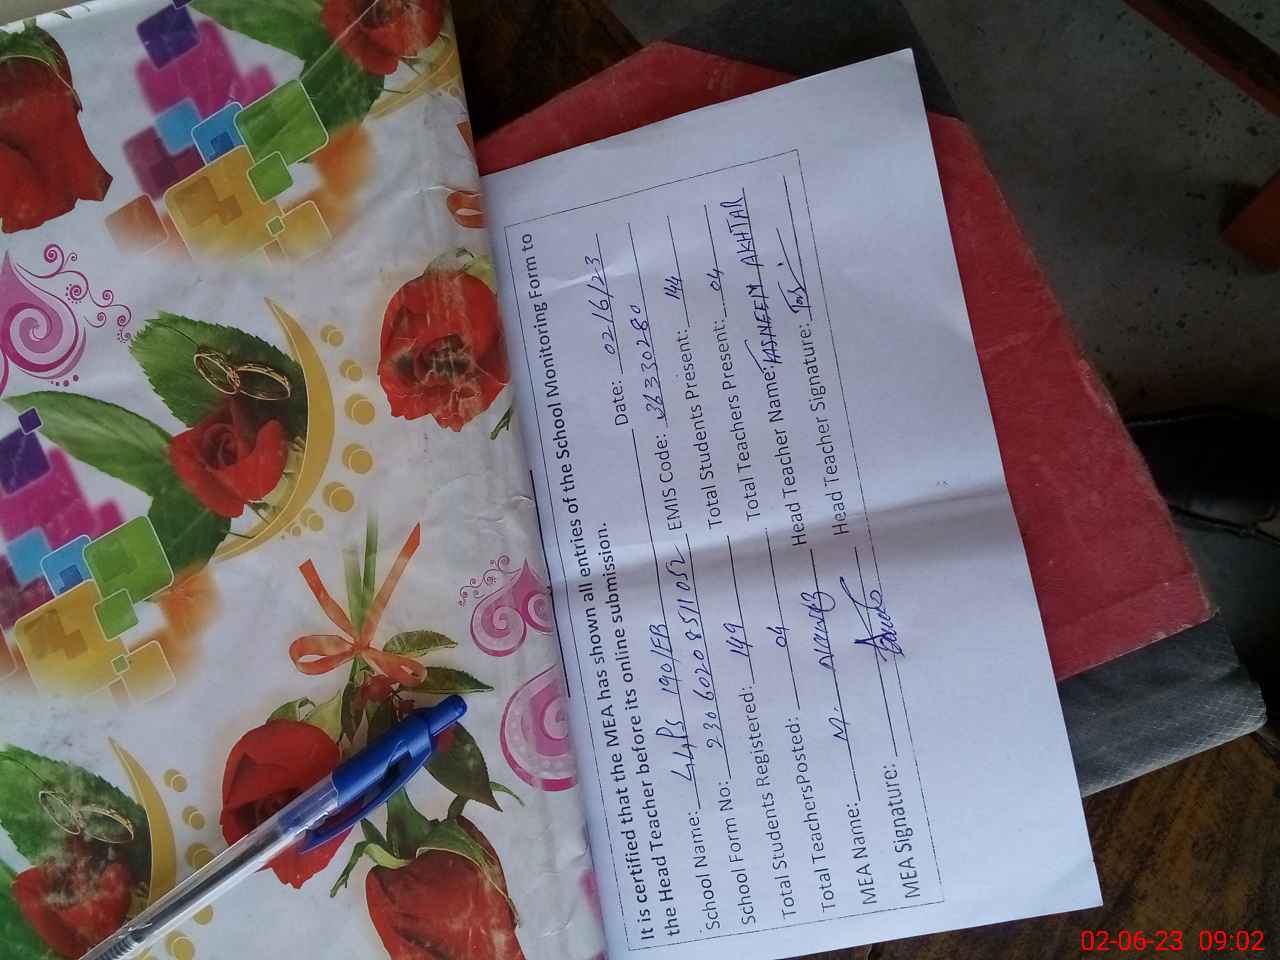 It is certified that the MEA has shown all entries of the School Monitoring Form to
the Head Teacher before its online submission.
School Name: GGPS 190/EB Date: 02/6/23
School Form No: 23060208511052 EMIS Code: 36330280
Total Students Registered: 149 Total Students Present: 144
Total TeachersPosted: 04 Total Teachers Present: 04
MEA Name: M. Nawaz Head Teacher Name: TASNEEM AKHTAR
MEA Signature: Head Teacher Signature:
02-06-23 09:02